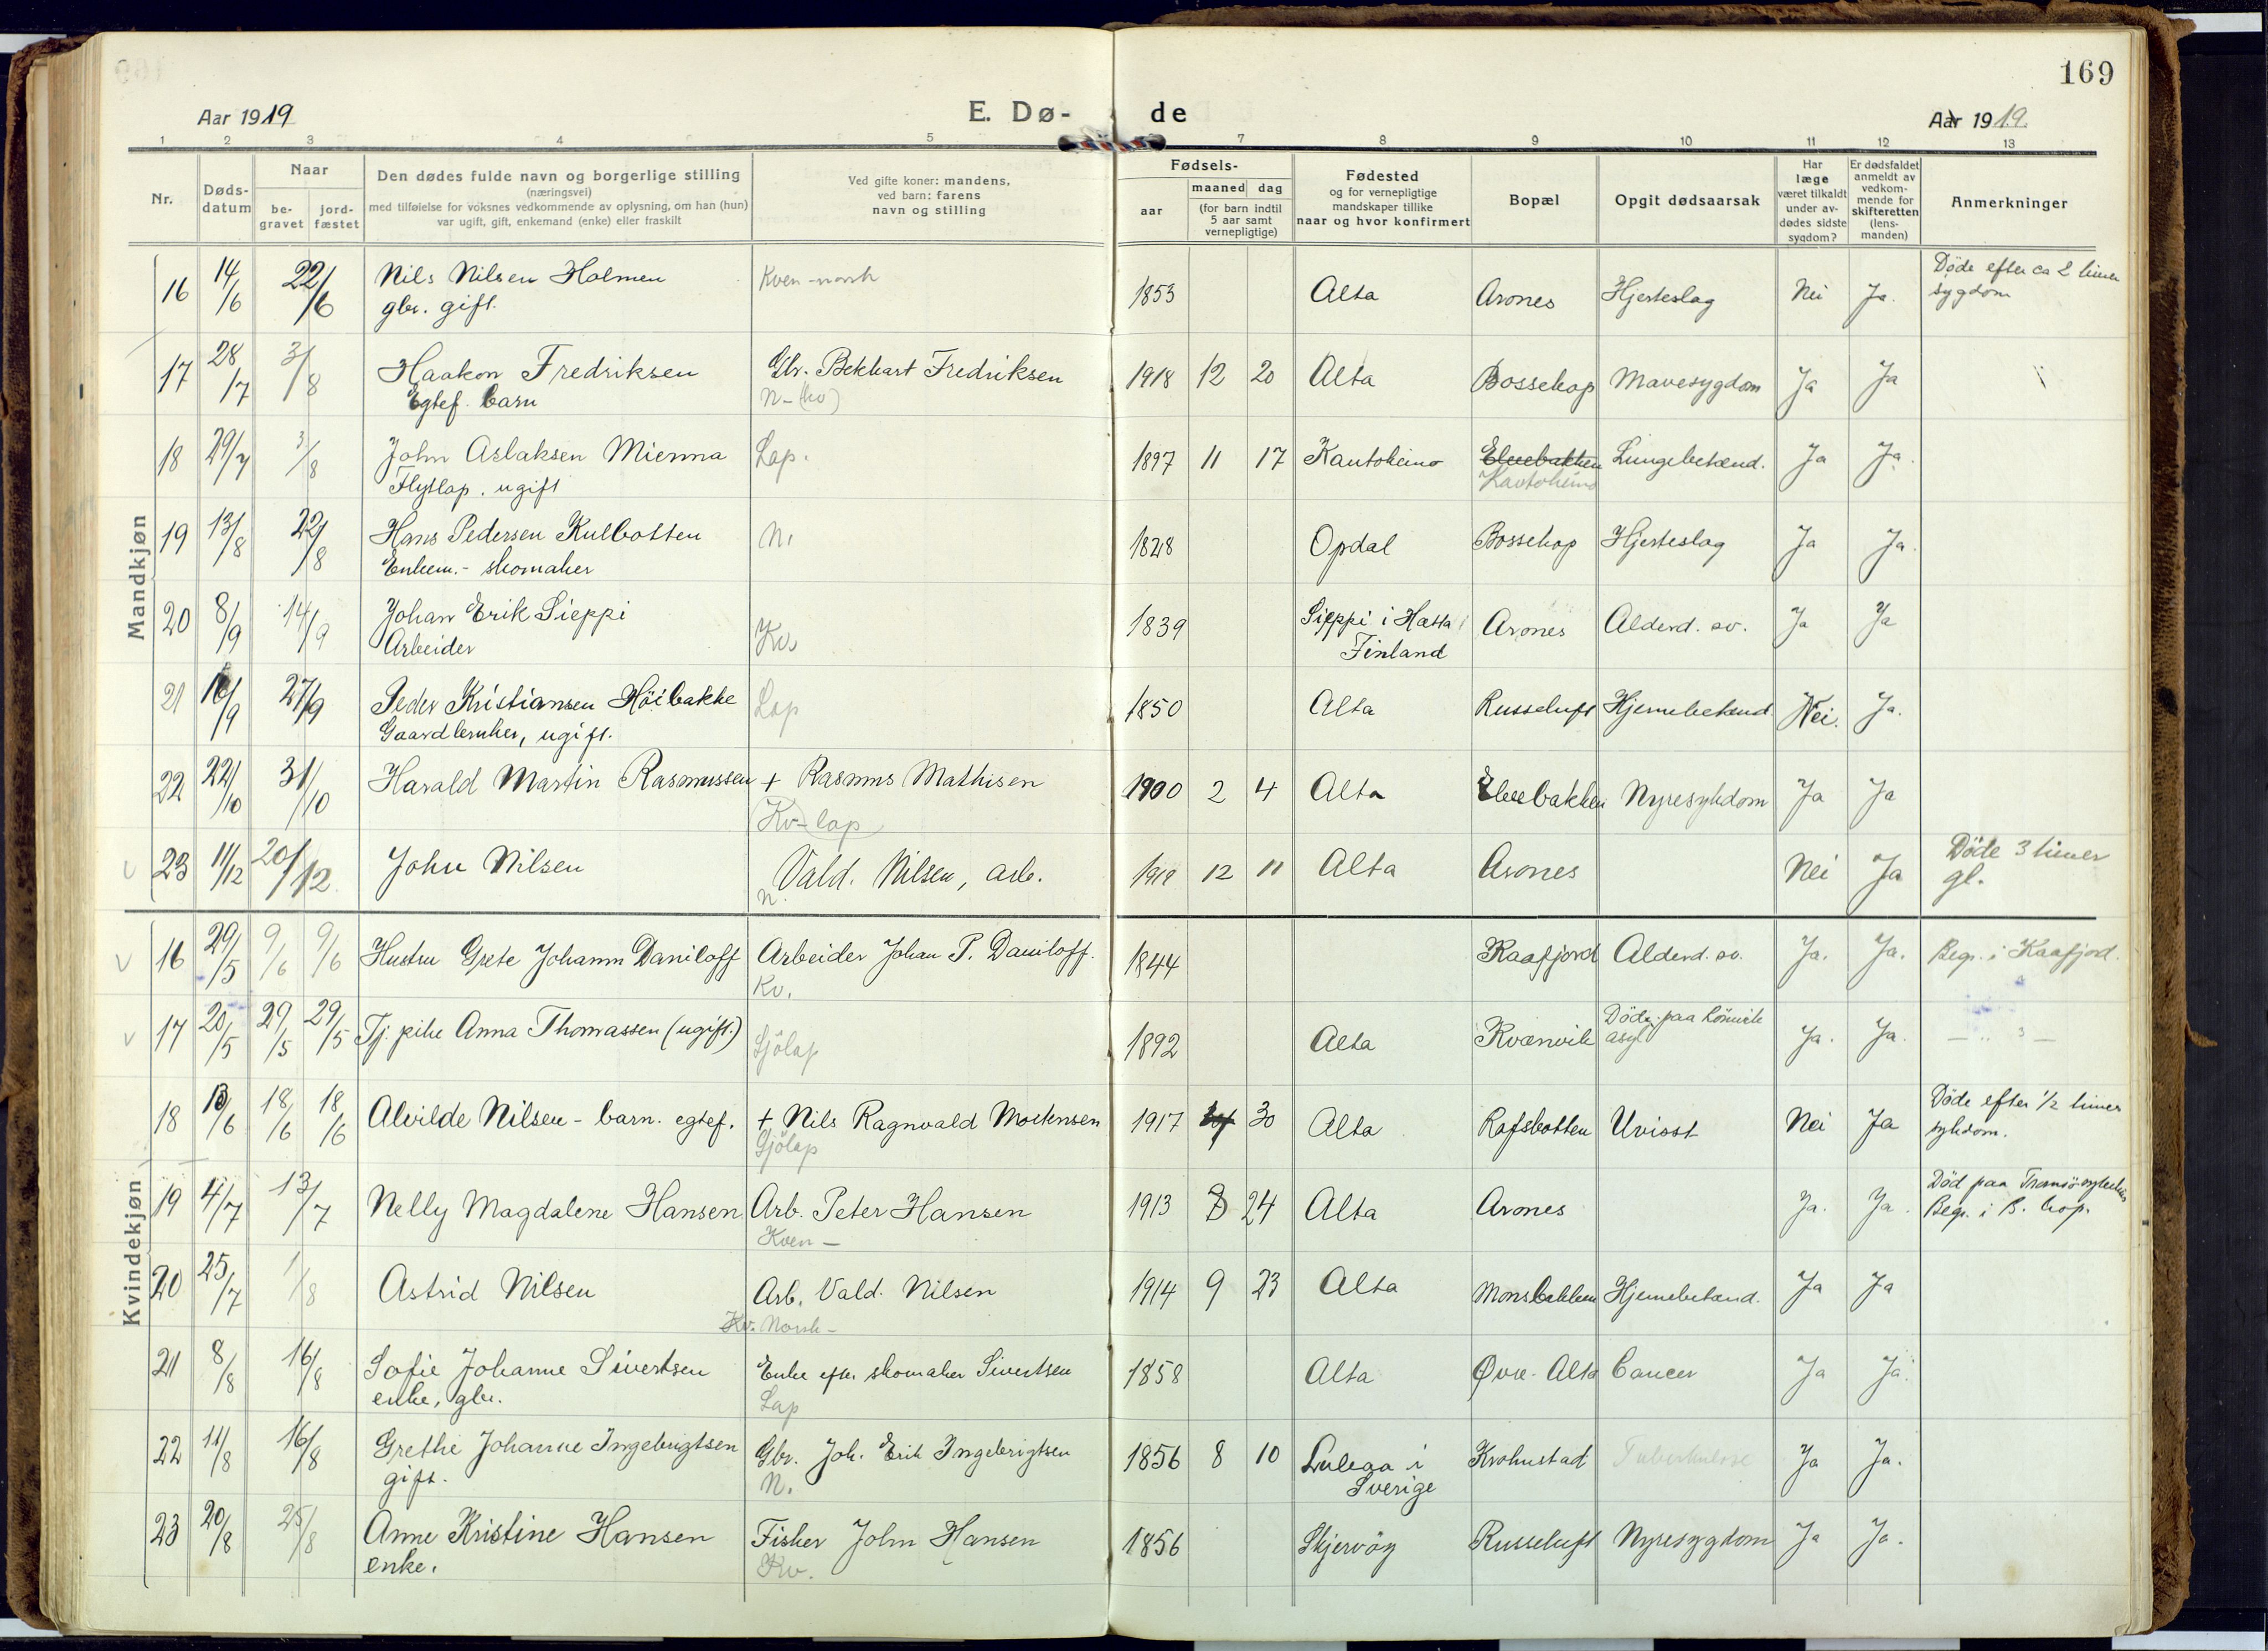 169
Aar 1919
E. Dø-
de
Aar 1919.
1 2 3 4 5 7 8 9 10 11 12 13
Nr.
Døds-
datum
Naar
be-
gravet
jord-
fæstet
Den dødes fulde navn og borgerlige stilling
(næringsvei)
med tilføielse for voksnes vedkommende av oplysning, om han (hun)
var ugift, gift, enkemand (enke) eller fraskilt
Ved gifte koner: mandens,
ved barn: farens
navn og stilling
Fødsels-
aar
maaned dag
(for barn indtil
5 aar samt
vernepligtige)
Fødested
og for vernepligtige
mandskaper tillike
naar og hvor konfirmert
Bopæl
Opgit dødsaarsak
Har
læge
været tilkaldt
under av-
dødes sidste
sygdom?
Er dødsfaldet
anmeldt av
vedkom-
mende for
skifteretten
(lens-
manden)
Anmerkninger
Mandkjøn
16 14/6 22/6 Nils Nilsen Holmen Kven-norsk 1853 Alta Arones Hjerteslag Nei Ja. Døde efter ca 2 timer
gbr. gift. sygdom
17 28/7 3/8 Haakon Fredriksen Gbr. Bekhart Fredriksen 1918 12 20 Alta Bossekop Mavesygdom Ja Ja
Egtef. barn N-(kv)
18 29/7 3/8 John Aslaksen Mienna Lap. 1897 11 17 Kautokeino Elvebakken Lungebetænd. Ja Ja.
Flytlap. ugift Kautokeino
19 13/8 22/8 Hans Pedersen Kulbotten N. 1828 Opdal Bossekop Hjerteslag Ja Ja.
Enkem.- skomaker
20 8/9 14/9 Johan Erik Sieppi Kv. 1839 Sieppi i Hætta i Arones Alderd. sv. Ja Ja
Arbeider Finland
21 16/9 27/9 Peder Kristiansen Höibakke Lap 1850 Alta Russeluft Hjernebetænd. Nei. Ja.
Gaardbruker, ugift.
22 22/10 31/10 Harald Martin Rasmussen + Rasmus Mathisen 1900 2 4 Alta Elvebakken Nyresykdom Ja Ja
Kv-lap
23 11/12 20/12 John Nilsen Vald. Nilsen, arb. 1919 12 11 Alta Arones Nei Ja Døde 3 timer
n. gl.
Kvindekjøn
16 29/5 9/6 9/6 Hustru Grete Johanna Daniloff Arbeider Johan P. Daniloff. 1844 Kaafjord Alderd. sv. Ja. Ja. Begr. i Kaafjord.
Kv.
17 20/5 29/5 29/5 Tj. pike Anna Thomassen (ugift.) Sjölap 1892 Alta Kvænvik Døde paa Rönvik Ja. Ja. — „ —
asyl
18 13/6 18/6 18/6 Alvilde Nilsen - barn. egtef. + Nils Ragnvald Mortensen 1917 30 Alta Rafsbotten Uvisst Nei Ja Døde efter 1/2 times
Sjölap sykdom.
19 4/7 13/7 Nelly Magdalene Hansen Arb. Peter Hansen 1913 8 24 Alta Arones Ja. Ja. Død paa Tromsö sykehus
Kven - Begr. i B. kop.
20 25/7 1/8 Astrid Nilsen Arb. Vald. Nilsen 1914 9 23 Alta Monsbakken Hjernebetænd. Ja Ja
Kv. Norsk-
21 8/8 16/8 Sofie Johanne Sivertsen Enke efter skomaker Sivertsen 1858 Alta Øvre-Alta Cancer Ja Ja.
enke, gbr. Lap
22 11/8 16/8 Grethe Johanne Ingebrigtsen Gbr. Joh. Erik Ingebrigtsen 1856 8 10 Luleaa i Krohnstad Tuberkulose Ja Ja.
gift. N. Sverige
23 20/8 25/8 Anne Kristine Hansen Fisker John Hansen 1856 Skjervöy Russeluft Nyresygdom Ja Ja.
enke. Kv.